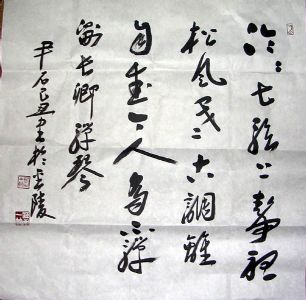 泠泠七弦上静聽
松風寒古調雖
自愛今人多不彈
劉長卿彈琴
尹石己丑書於金陵